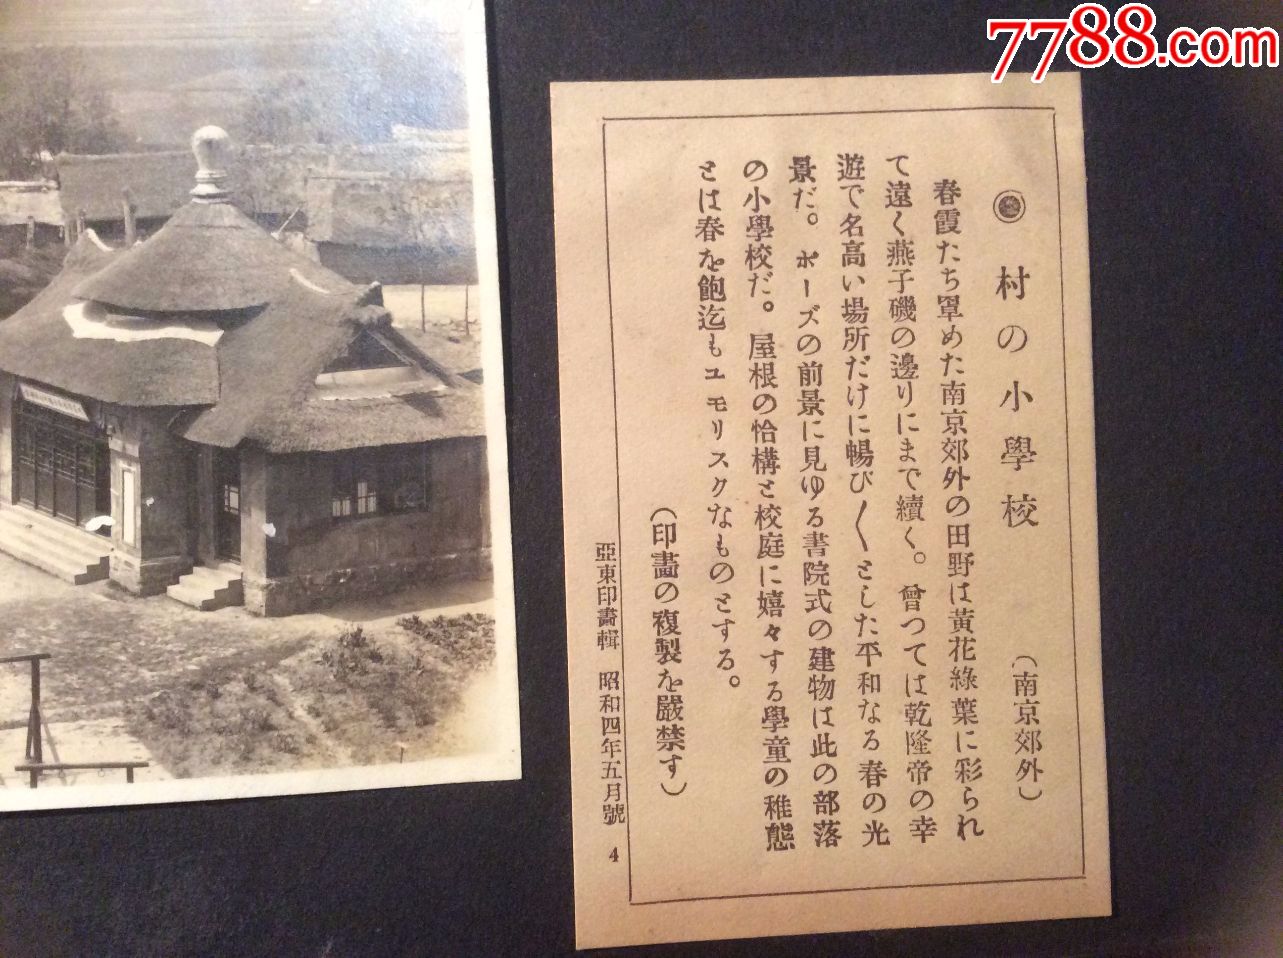 7788.com
村の小學校 （南京郊外）
春霞たち罩めた南京郊外の田野は黃花綠葉に彩られ
て遠く燕子磯の邊りにまで續く。曾つては乾隆帝の幸
遊で名高い場所だけに暢び〱とした平和なる春の光
景だ。ポーズの前景に見ゆる書院式の建物は此の部落
の小學校だ。屋根の恰構と校庭に嬉々する學童の稚態
とは春を飽迄もユモリスクなものとする。
（印畵の複製を嚴禁す）
亞東印畵輯 昭和四年五月號 4